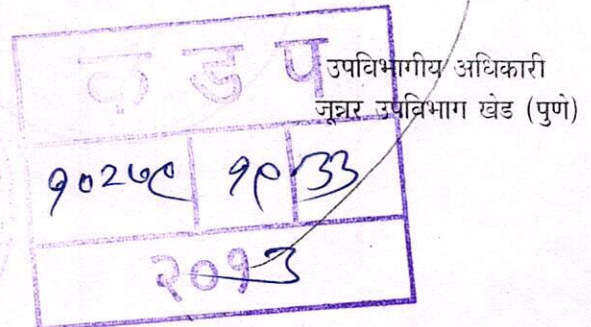 क ड प
उपविभागीय अधिकारी
जून्नर उपविभाग खेड (पुणे)
१०२७९ १९ ३३
२०१३